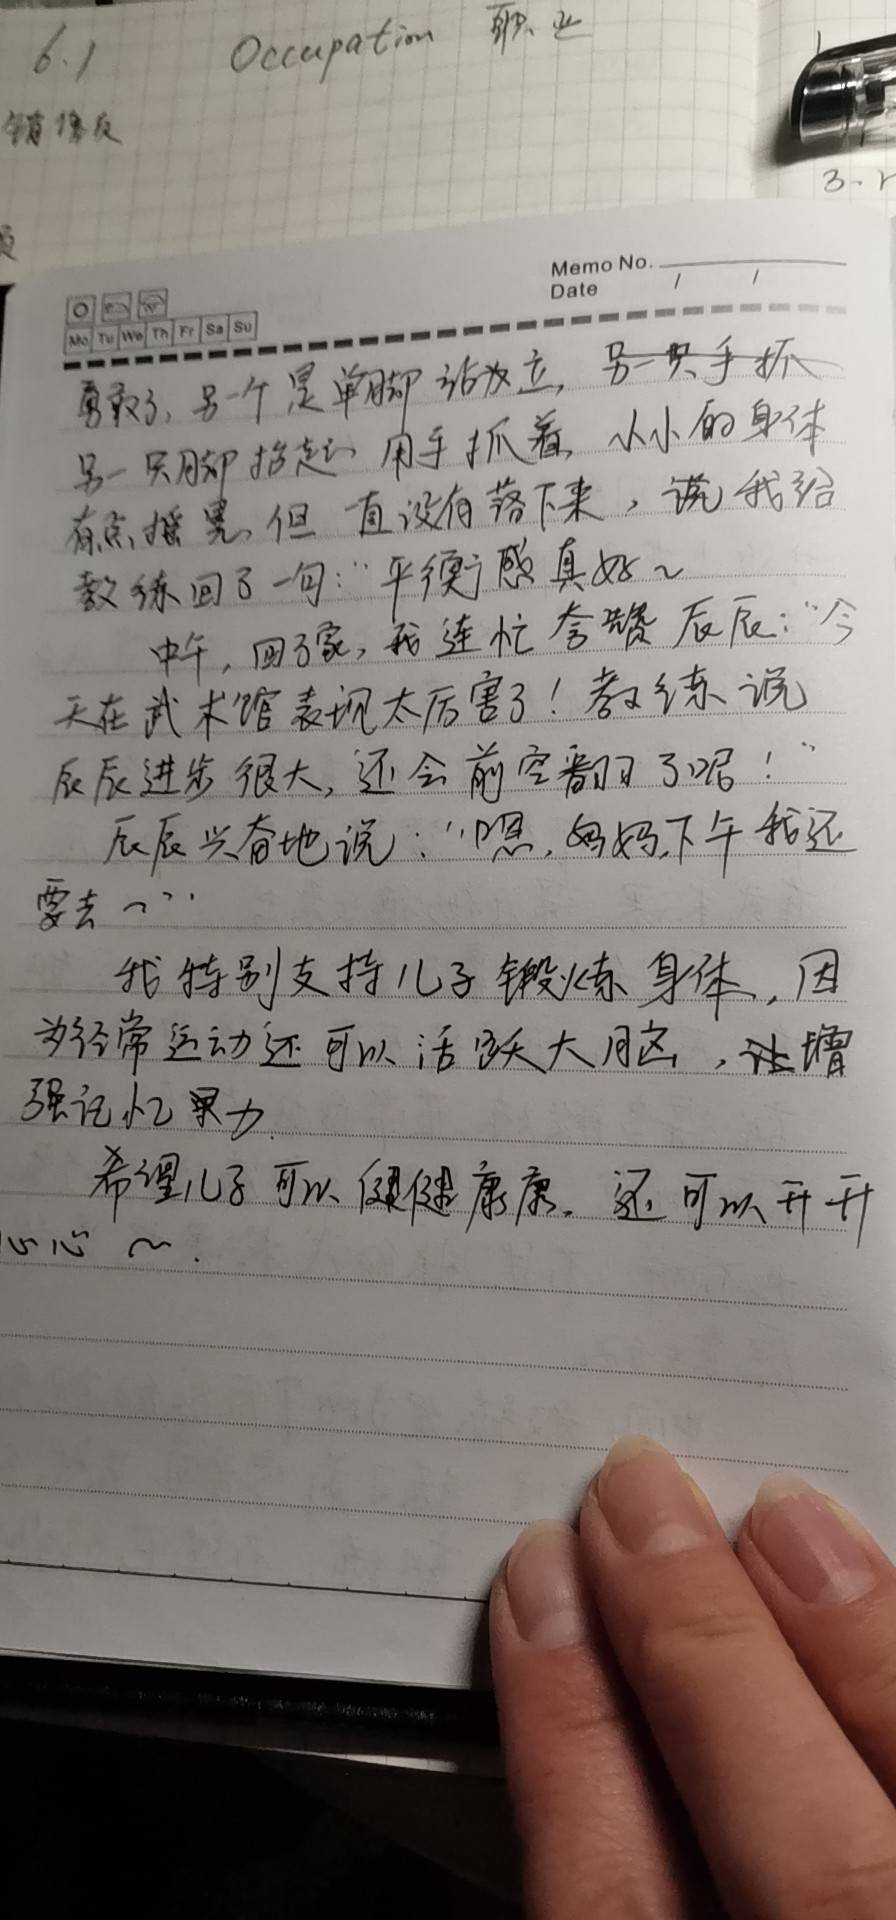 6.1 Occupation 职业
销售员
3.
Memo No.
Date / /
Mo Tu We Th Fr Sa Su
勇敢了,另一个是单脚站立,另一只手抓
另一只脚抬起,用手抓着,小小的身体
有点摇晃,但一直没有落下来,说我给
教练回了一句:“平衡感真好~
中午,回了家,我连忙夸赞辰辰:“今
天在武术馆表现太厉害了!教练说
辰辰进步很大,还会前空翻了呢!”
辰辰兴奋地说:“嗯,妈妈,下午我还
要去~”
我特别支持儿子锻炼身体,因
为经常运动还可以活跃大脑,让增
强记忆力.
希望儿子可以健健康康,还可以开开
心心~.